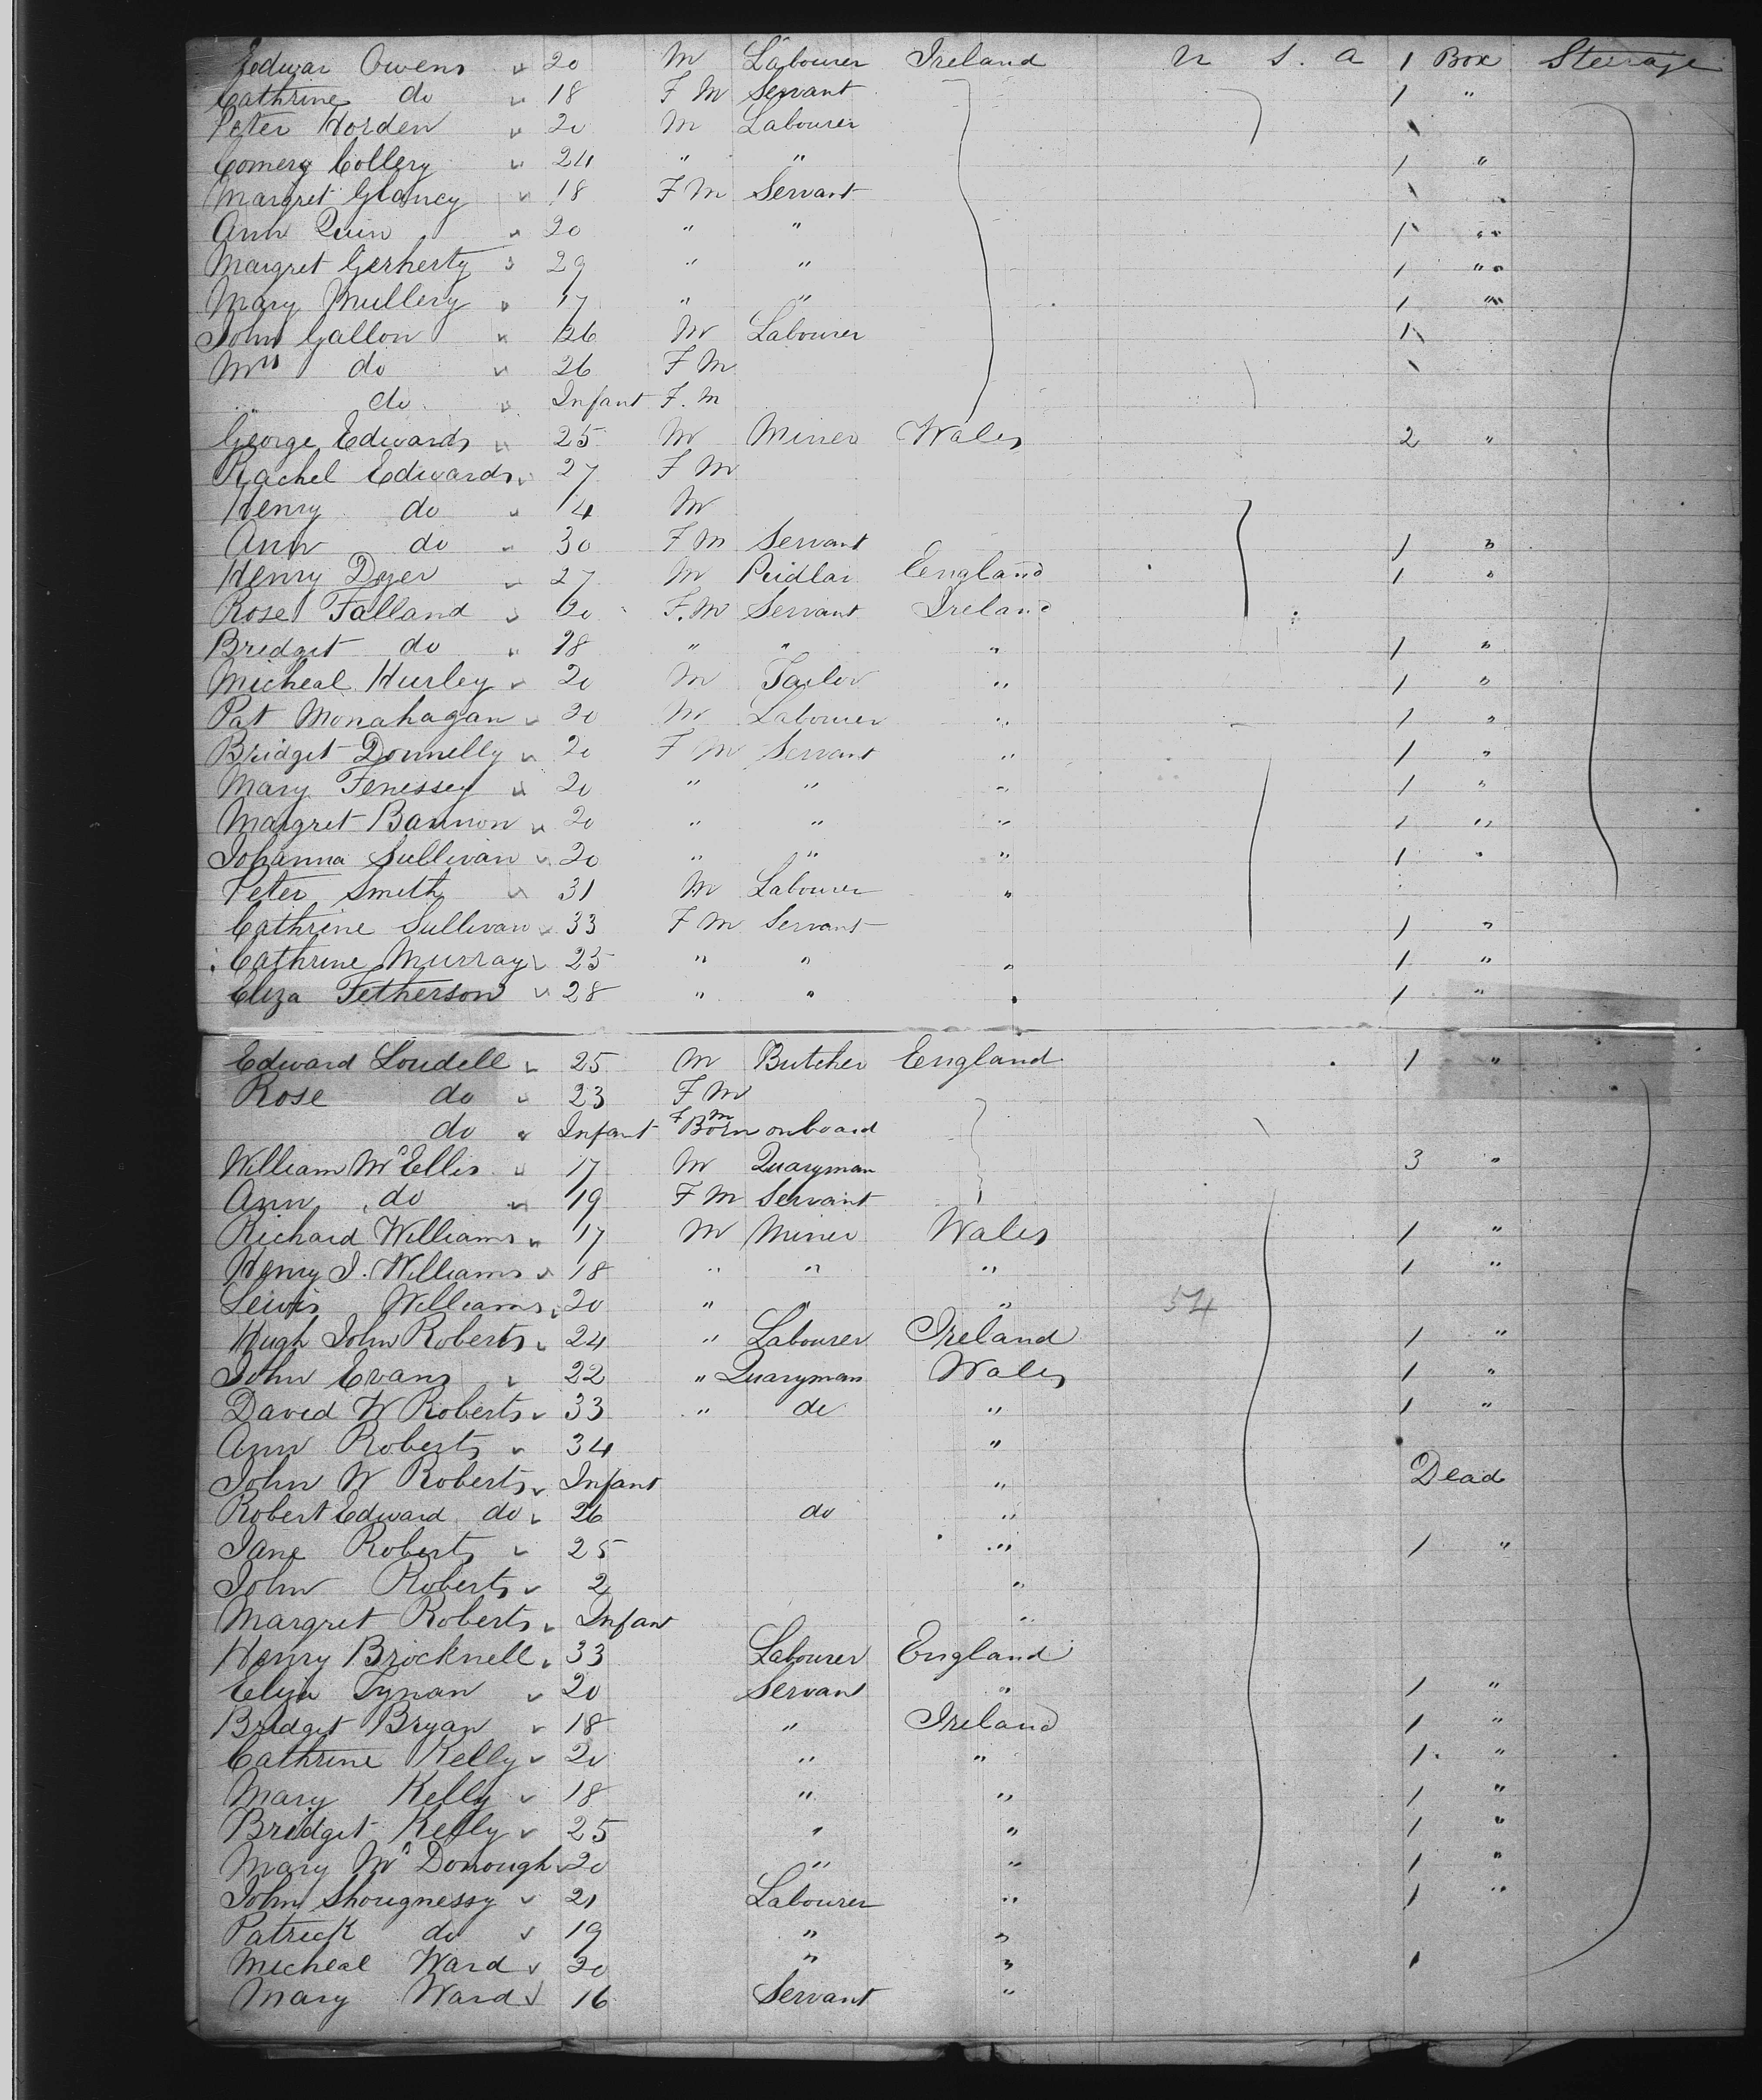 Edwar Owens 20 M Labourer Ireland U S. A 1 Box Steerage
Cathrine do 18 F M Servant 1 "
Peter Horden 20 M Labourer 1
Comery Collery 24 " " 1 "
Margret Glancy 18 F M Servant 1 "
Ann Quin 20 " " 1 "
Margret Gerherty 29 " " 1 "
Mary Mullery 17 " " 1 "
John Gallon 26 M Labourer 1
Mrs do 26 F M 1
" do Infant F. M
George Edwards 25 M Miner Wales 2 "
Rachel Edwards 27 F M
Henry do 14 M
Ann do 30 F M Servant 1 "
Henry Dyer 27 M Pedlar England 1 "
Rose Falland 20 F. M Servant Ireland
Bridget do 18 " " " 1 "
Micheal Hurley 20 M Tailor " 1 "
Pat Monahagan 20 M Labourer " 1 "
Bridget Donnelly 20 F M Servant " 1 "
Mary Fenessey 20 " " " 1 "
Margret Bannon 20 " " " 1 "
Johanna Sullivan 20 " " " 1 "
Peter Smith 31 M Labourer "
Cathrine Sullivan 33 F M Servant 1 "
Cathrine Murray 25 " " " 1 "
Eliza Fetherson 28 " " " 1 "
Edward Loudell 25 M Butcher England 1 "
Rose do 23 F M
do Infant F M Born onboard
William McEllis 17 M Quaryman 3 "
Ann do 19 F M Servant
Richard Williams 17 M Miner Wales 1 "
Henry J. Williams 18 " " " 1 "
Lewis Williams 20 " " " 54
Hugh John Roberts 24 " Labourer Ireland 1 "
John Evans 22 " Quaryman Wales 1 "
David W Roberts 33 " do " 1 "
Ann Roberts 34 "
John W Roberts Infant " Dead
Robert Edward do 26 do "
Jane Roberts 25 " 1 "
John Roberts 2 "
Margret Roberts Infan "
Henry Bricknell 33 Labourer England
Eliza Tynan 20 Servant " 1 "
Bridget Bryan 18 " Ireland 1 "
Cathrine Kelly 20 " " 1 "
Mary Kelly 18 " " 1 "
Bridget Kelly 25 " " 1 "
Mary McDonough 20 " " 1 "
John Shougnessy 21 Labourer " 1 "
Patrick do 19 " "
Micheal Ward 20 " " 1
Mary Ward 16 Servant "